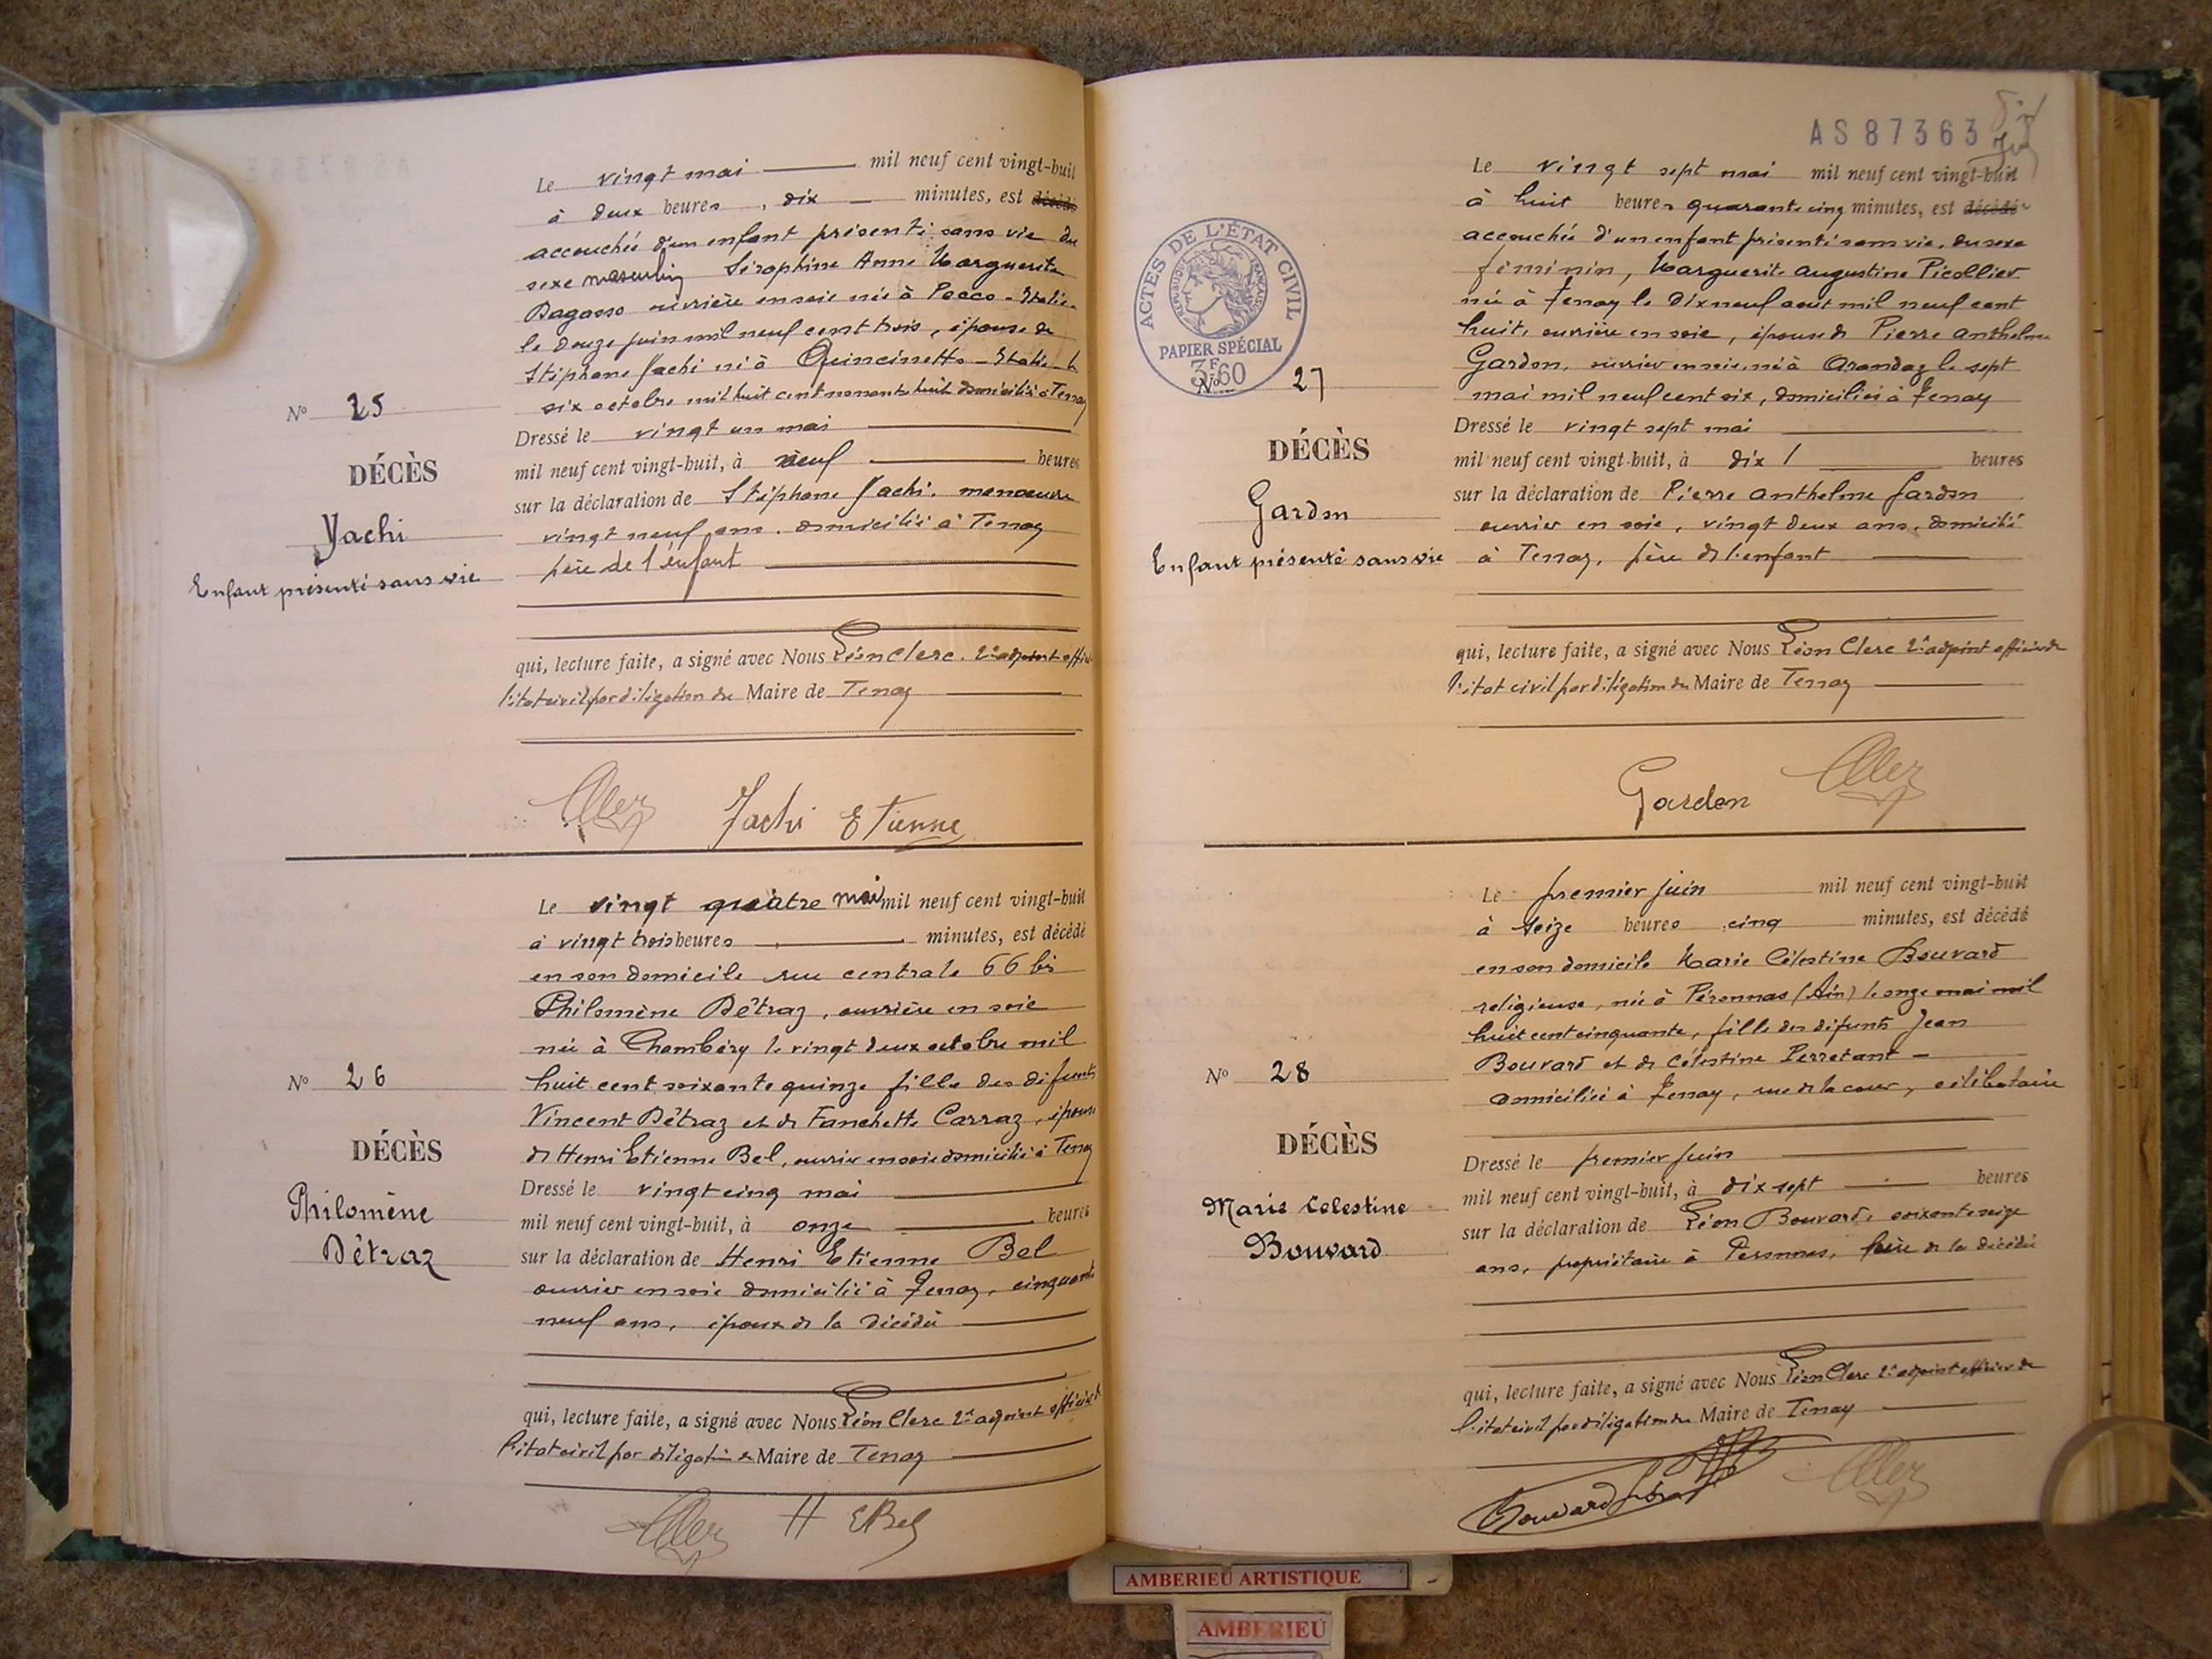 Le vingt mai mil neuf cent vingt-huit
à deux heures, dix minutes, est décédé
accouchée d'un enfant présenté sans vie du
sexe masculin Séraphine Anne Marguerite
Bagasso ouvrière en soie née à Pecco - Italie
le douze juin mil neuf cent trois, épouse de
Stéphane Yachi né à Quincinetto - Italie - le
six octobre mil huit cent nonante huit domiciliés à Tenay
Nº 25
Dressé le vingt un mai
DÉCÈS
mil neuf cent vingt-huit, à neuf heures
sur la déclaration de Stéphane Yachi, manoeuvre
Yachi
vingt neuf ans, domicilié à Tenay
Enfant présenté sans vie
père de l'enfant
qui, lecture faite, a signé avec Nous Léon Clerc, 2e adjoint officier
l'état civil par délégation du Maire de Tenay
Yachi Etienne
Le vingt quatre mai mil neuf cent vingt-huit
à vingt trois heures minutes, est décédé
en son domicile rue centrale 66 bis
Philomène Détraz, ouvrière en soie
née à Chambéry le vingt deux octobre mil
Nº 26
huit cent soixante quinze fille des défunts
Vincent Détraz et de Fanchette Carraz, épouse
DÉCÈS
de Henri Etienne Bel, ouvrier en soie domicilié à Tenay
Philomène
Dressé le vingt cinq mai
mil neuf cent vingt-huit, à onze heures
Détraz
sur la déclaration de Henri Etienne Bel
ouvrier en soie domicilié à Tenay, cinquante
neuf ans, époux de la décédée
qui, lecture faite, a signé avec Nous Léon Clerc 2e adjoint officier de
l'état civil par délégation du Maire de Tenay
H EBel
AS 87363
Le vingt sept mai mil neuf cent vingt-huit
à huit heures quarante cinq minutes, est décédé
accouchée d'un enfant présenté sans vie, du sexe
féminin, Marguerite Augustine Picollier
née à Tenay le dix neuf aout mil neuf cent
huit, ouvrière en soie, épouse de Pierre Anthelme
Gardon, ouvrier en soie, né à Arandaz le sept
mai mil neuf cent six, domiciliés à Tenay
ACTES DE L'ÉTAT CIVIL
RÉPUBLIQUE FRANÇAISE
PAPIER SPÉCIAL
3F60
Nº 27
DÉCÈS
Dressé le vingt sept mai
mil neuf cent vingt-huit, à dix heures
Gardon
sur la déclaration de Pierre Anthelme Gardon
ouvrier en soie, vingt deux ans, domicilié
Enfant présenté sans vie
à Tenay, père de l'enfant
qui, lecture faite, a signé avec Nous Léon Clerc 2e adjoint officier de
l'état civil par délégation du Maire de Tenay
Gardon
Le premier juin mil neuf cent vingt-huit
à seize heures cinq minutes, est décédé
en son domicile Marie Célestine Bouvard
religieuse, née à Péronnas (Ain) le onze mai mil
huit cent cinquante, fille des défunts Jean
Bouvard et de Célestine Perretant
domiciliée à Tenay, rue de la cour, célibataire
Nº 28
DÉCÈS
Marie Celestine
Bouvard
Dressé le premier juin
mil neuf cent vingt-huit, à dix sept heures
sur la déclaration de Léon Bouvard, soixante seize
ans, propriétaire à Peronnas, frère de la décédée
qui, lecture faite, a signé avec Nous Léon Clerc 2e adjoint officier de
l'état civil par délégation du Maire de Tenay
Bouvard Léon
AMBERIEU ARTISTIQUE
AMBERIEU